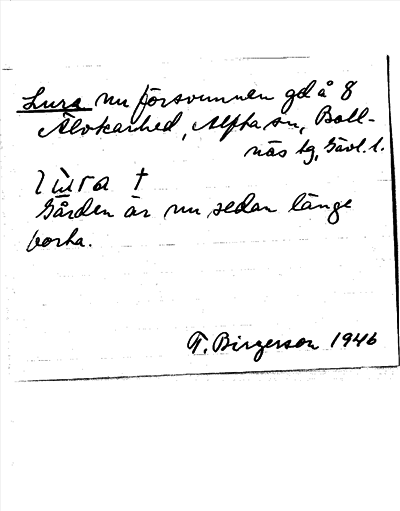 Lura nu försvunnen gd å 8
Älvkarhed, Alfta sn, Boll-
näs tg, Gävl. l.
lùra †
Gården är nu sedan länge
borta.
T. Birgerson 1946